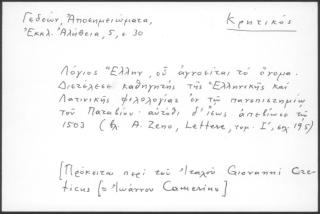 Γεδεών, Ἀποσημειώματα,
Ἐκκλ. Ἀλήθεια, 5, σ. 30
Κρητικός
Λόγιος Ἕλλην, οὗ ἀγνοεῖται τό ὄνομα.
Διετέλεσε καθηγητής τῆς Ἑλληνικῆς καί
Λατινικῆς φιλολογίας ἐν τῷ πανεπιστημίῳ
τοῦ Παταβίου· αὐτόθι δ' ἴσως ἀπεβίωσε τῷ
1503 (βλ. A. Zeno, Lettere, τομ. Ι΄, σελ. 195)
[Πρόκειται περί τοῦ Ἰταλοῦ Giovanni Cre-
ticus [ὁ Ἰωάννου Camerino]